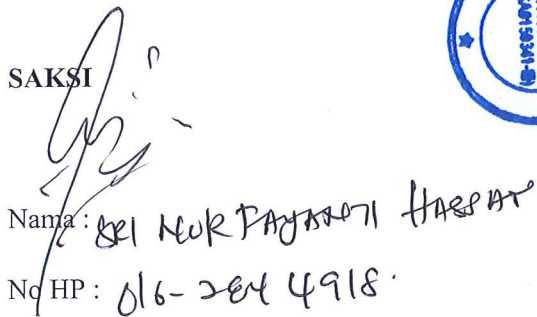 SAKSI
Nama : SRI NUR HASSAN
No HP : 016-284 4918.